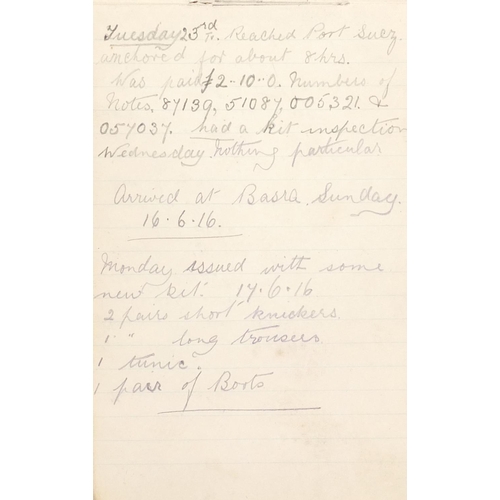 Tuesday 23rd Reached Port Suez
anchored for about 8 hrs.
Was paid £2-10-0. Numbers of
Notes, 87139, 51087, 005321. &
057037. had a kit inspection
Wednesday Nothing particular
Arrived at Basra Sunday.
16.6.16.
Monday issued with some
new kit. 17.6.16
2 pairs short knickers
1 " long trousers
1 tunic.
1 pair of Boots